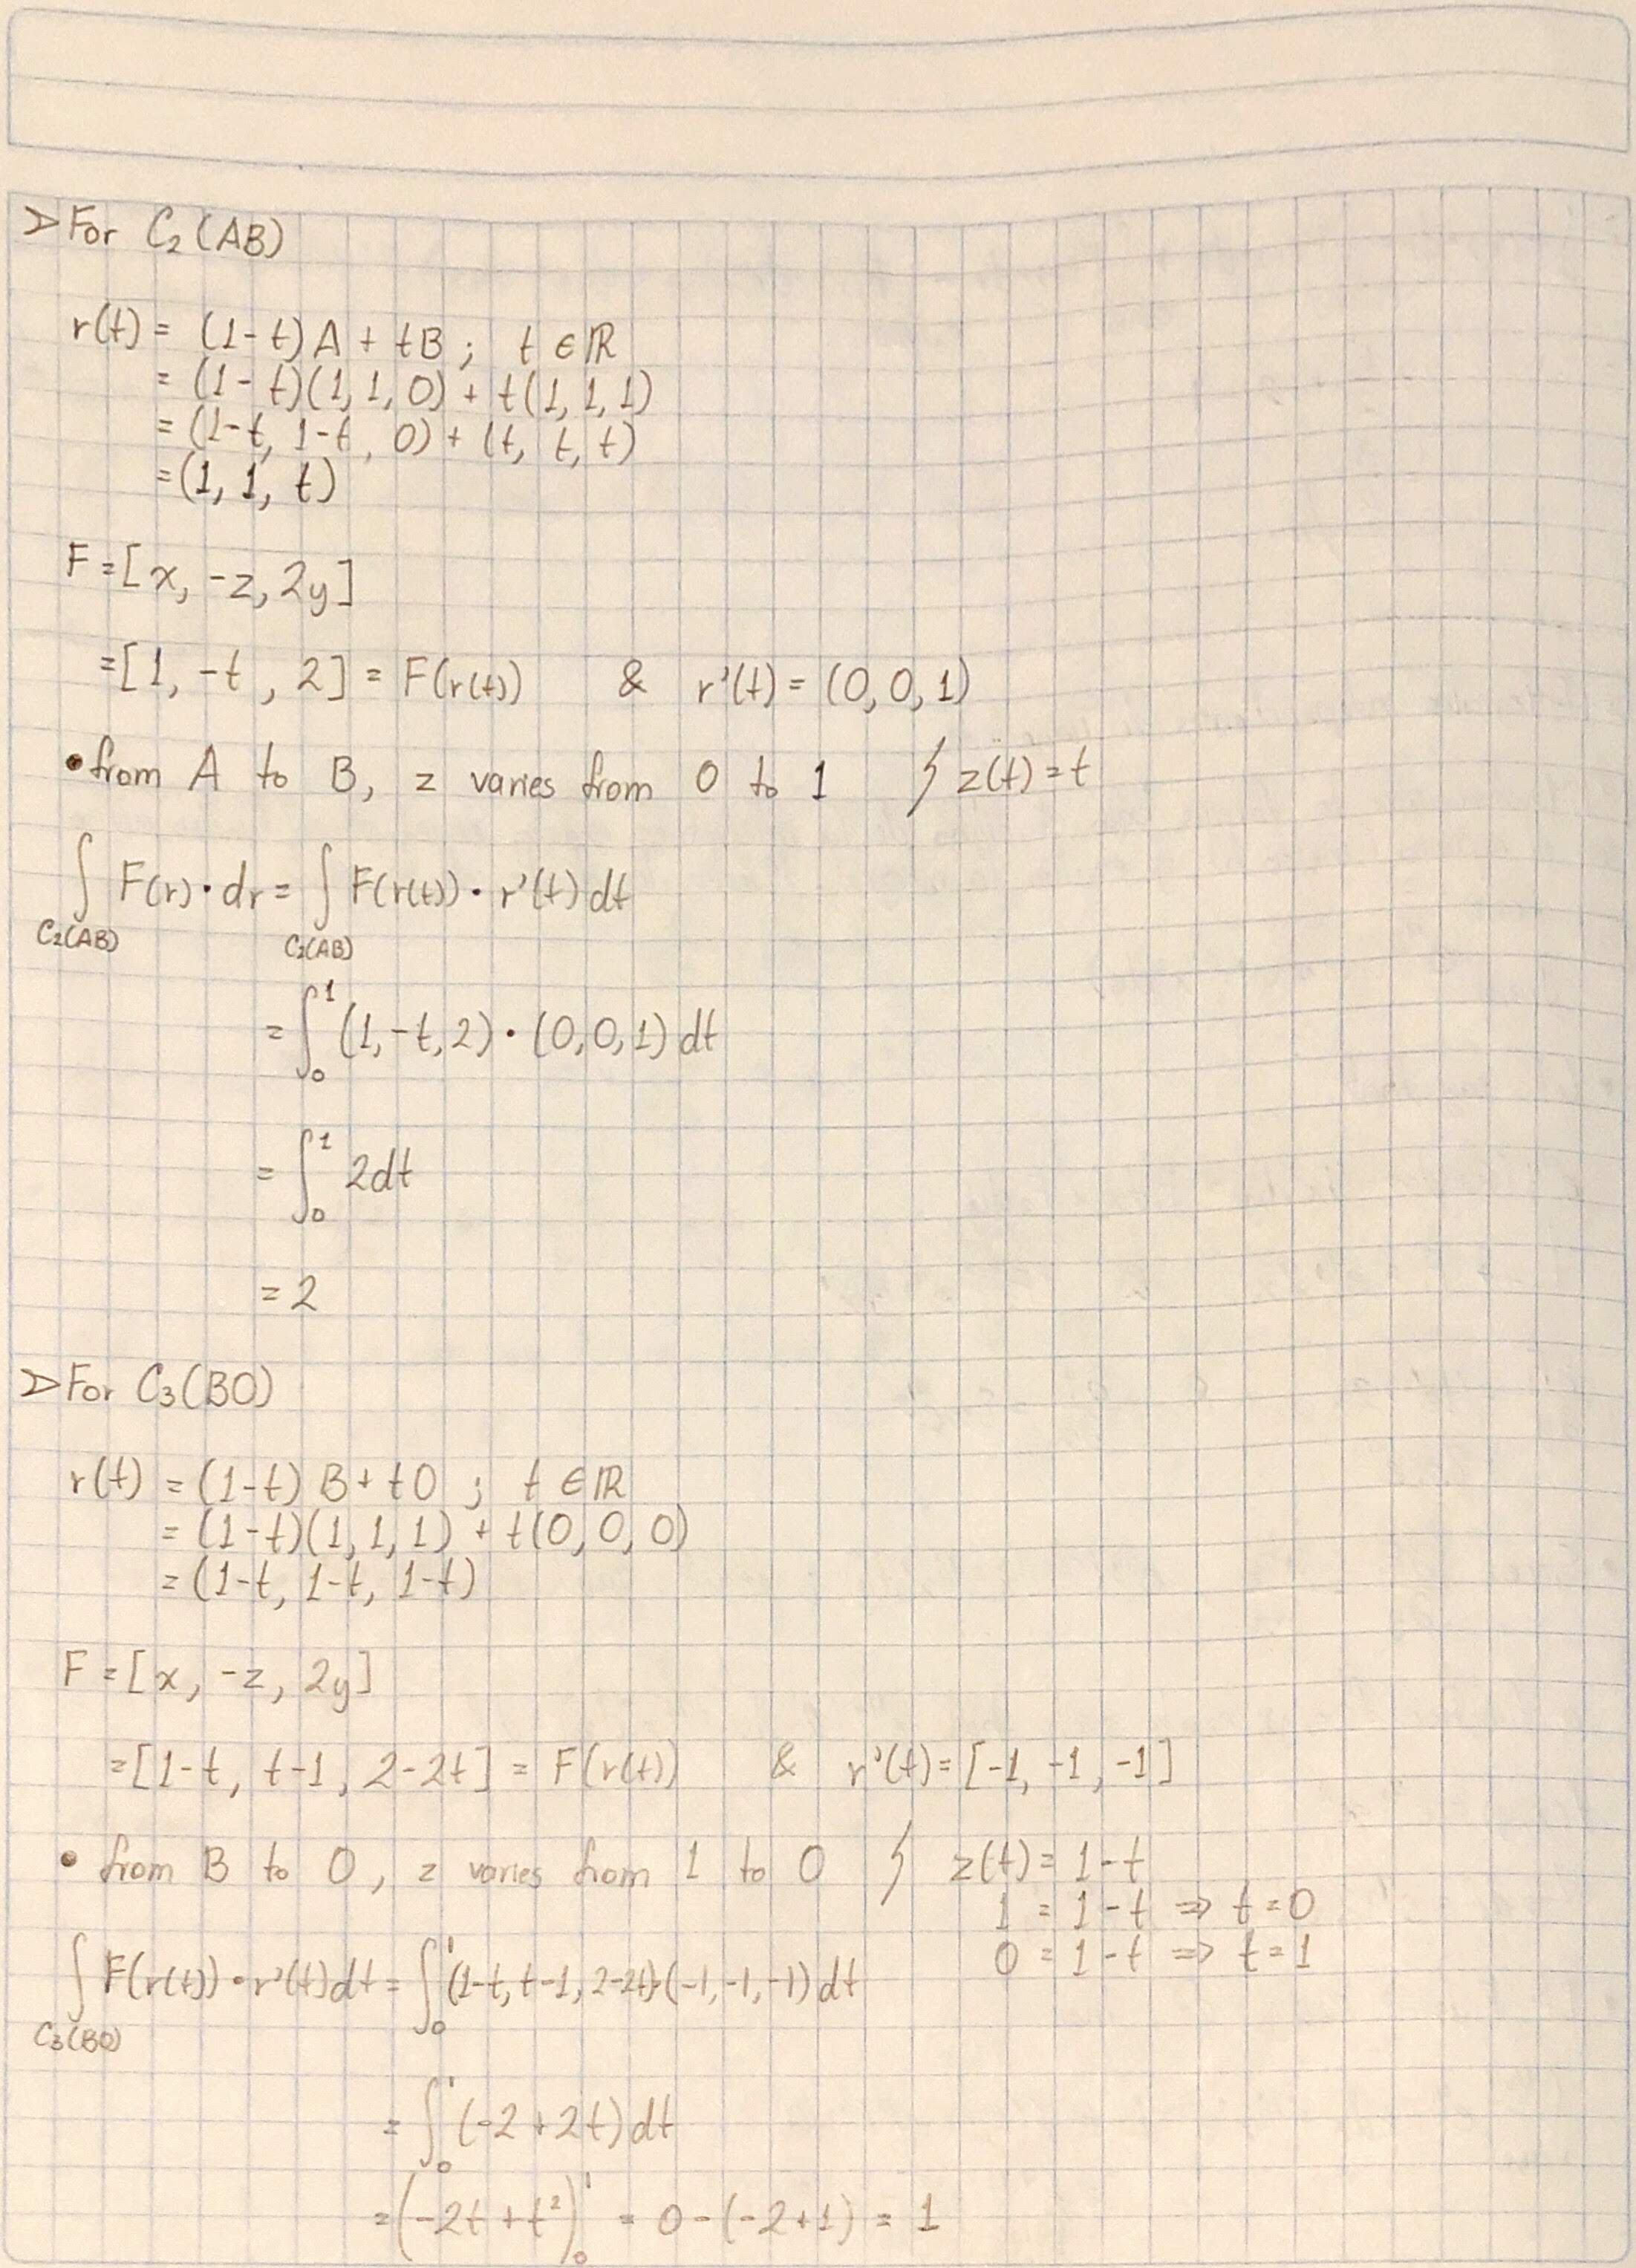 ▷ For C₂(AB)
r(t) = (1-t)A + tB ; t ∈ ℝ
= (1-t)(1,1,0) + t(1,1,1)
= (1-t, 1-t, 0) + (t, t, t)
= (1, 1, t)
F = [x, -z, 2y]
= [1, -t, 2] = F(r(t)) & r'(t) = (0, 0, 1)
• from A to B, z varies from 0 to 1 ∫ z(t) = t
∫_{C₂(AB)} F(r) · dr = ∫_{C₂(AB)} F(r(t)) · r'(t) dt
= ∫₀¹ (1, -t, 2) · (0, 0, 1) dt
= ∫₀¹ 2dt
= 2
▷ For C₃(BO)
r(t) = (1-t) B + tO ; t ∈ ℝ
= (1-t)(1,1,1) + t(0,0,0)
= (1-t, 1-t, 1-t)
F = [x, -z, 2y]
= [1-t, t-1, 2-2t] = F(r(t)) & r'(t) = [-1, -1, -1]
• from B to O, z varies from 1 to 0 ∫ z(t) = 1-t
1 = 1-t ⇒ t = 0
0 = 1-t ⇒ t = 1
∫_{C₃(BO)} F(r(t)) · r'(t) dt = ∫₀¹ (1-t, t-1, 2-2t)·(-1, -1, -1) dt
= ∫₀¹ (-2 + 2t) dt
= (-2t + t²)₀¹ = 0 - (-2+1) = 1